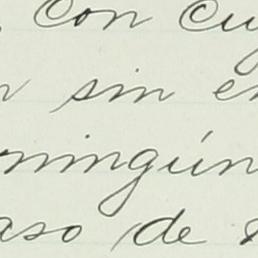 . con cu
n sin en
ningún
aso de